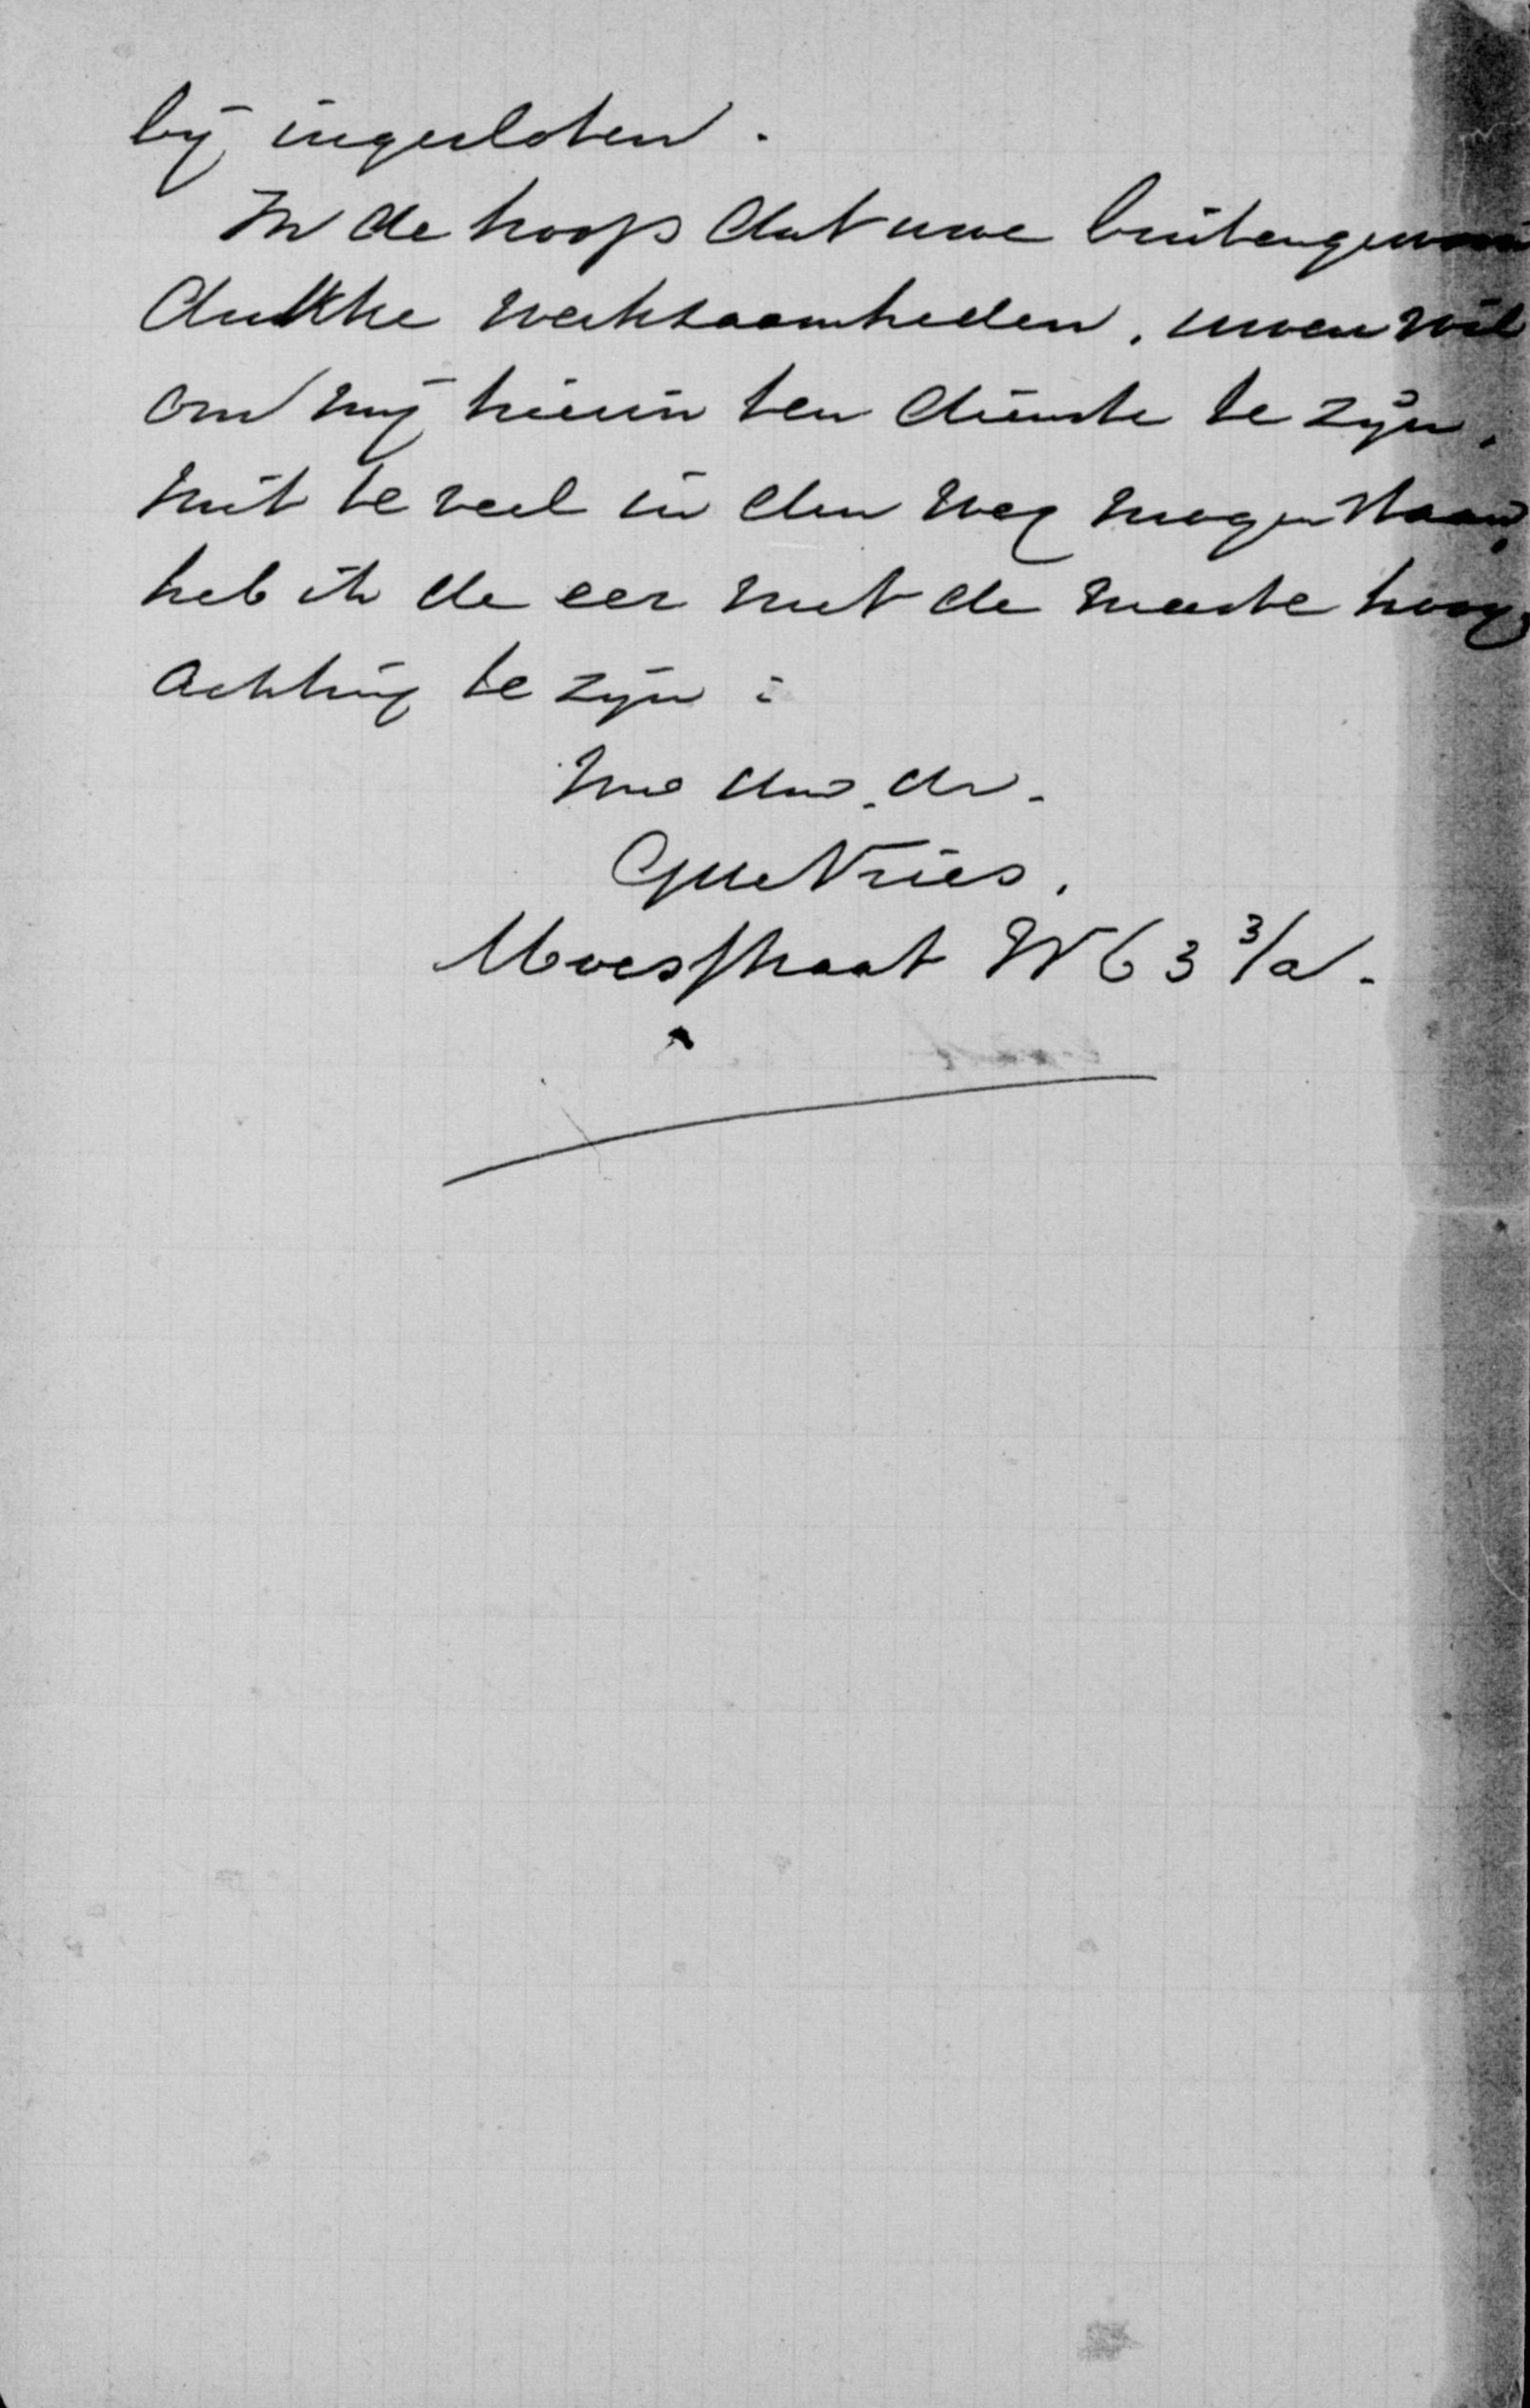 bij ingesloten.
In de hoop dat uwe buitengewoon
drukke werkzaamheden, uwen wil
om mij hierin ten dienste te zijn,
niet te veel in den weg mogen staan,
heb ik de eer met de meeste hoog
achting te zijn:
Uw dw. dr.
de Vries.
straat W 63 3/a.